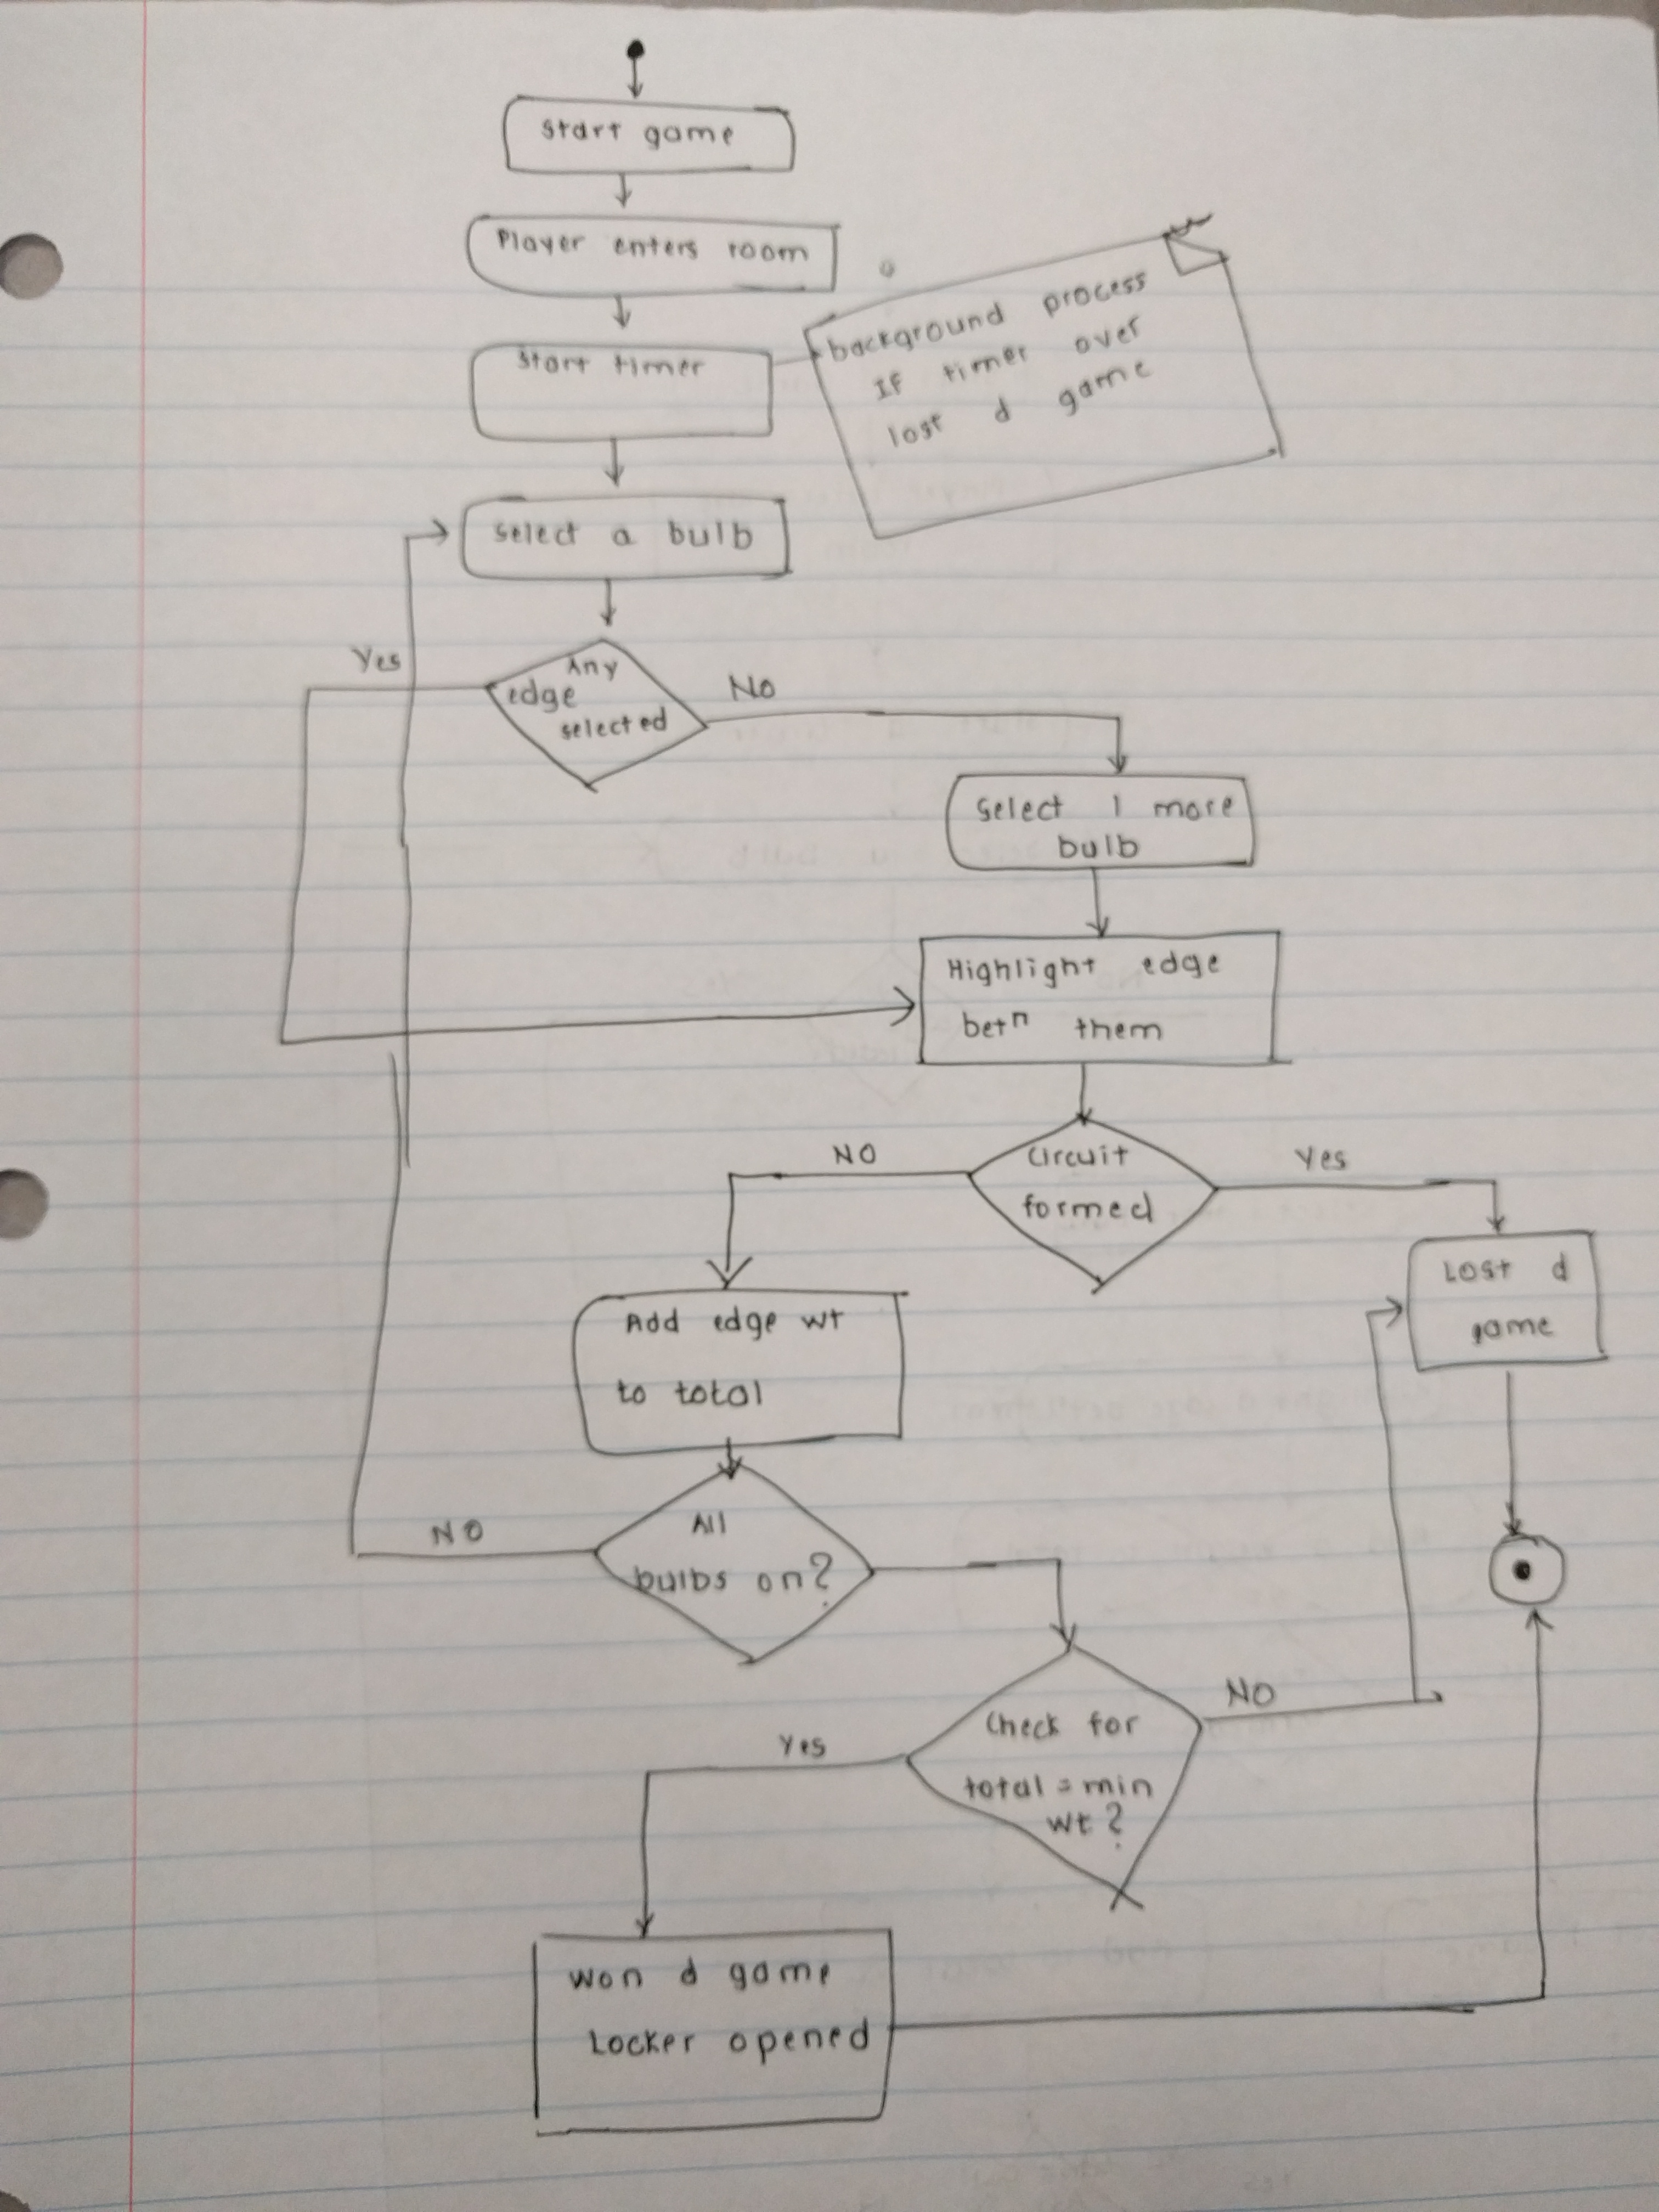 Start game
Player enters room
Start timer
background process
If timer over
lost d game
Select a bulb
Yes
Any
edge
selected
No
Select 1 more
bulb
Highlight edge
betn them
NO
Circuit
formed
Yes
Lost d
game
Add edge wt
to total
NO
All
bulbs on?
NO
Check for
total = min
wt?
Yes
Won d game
Locker opened